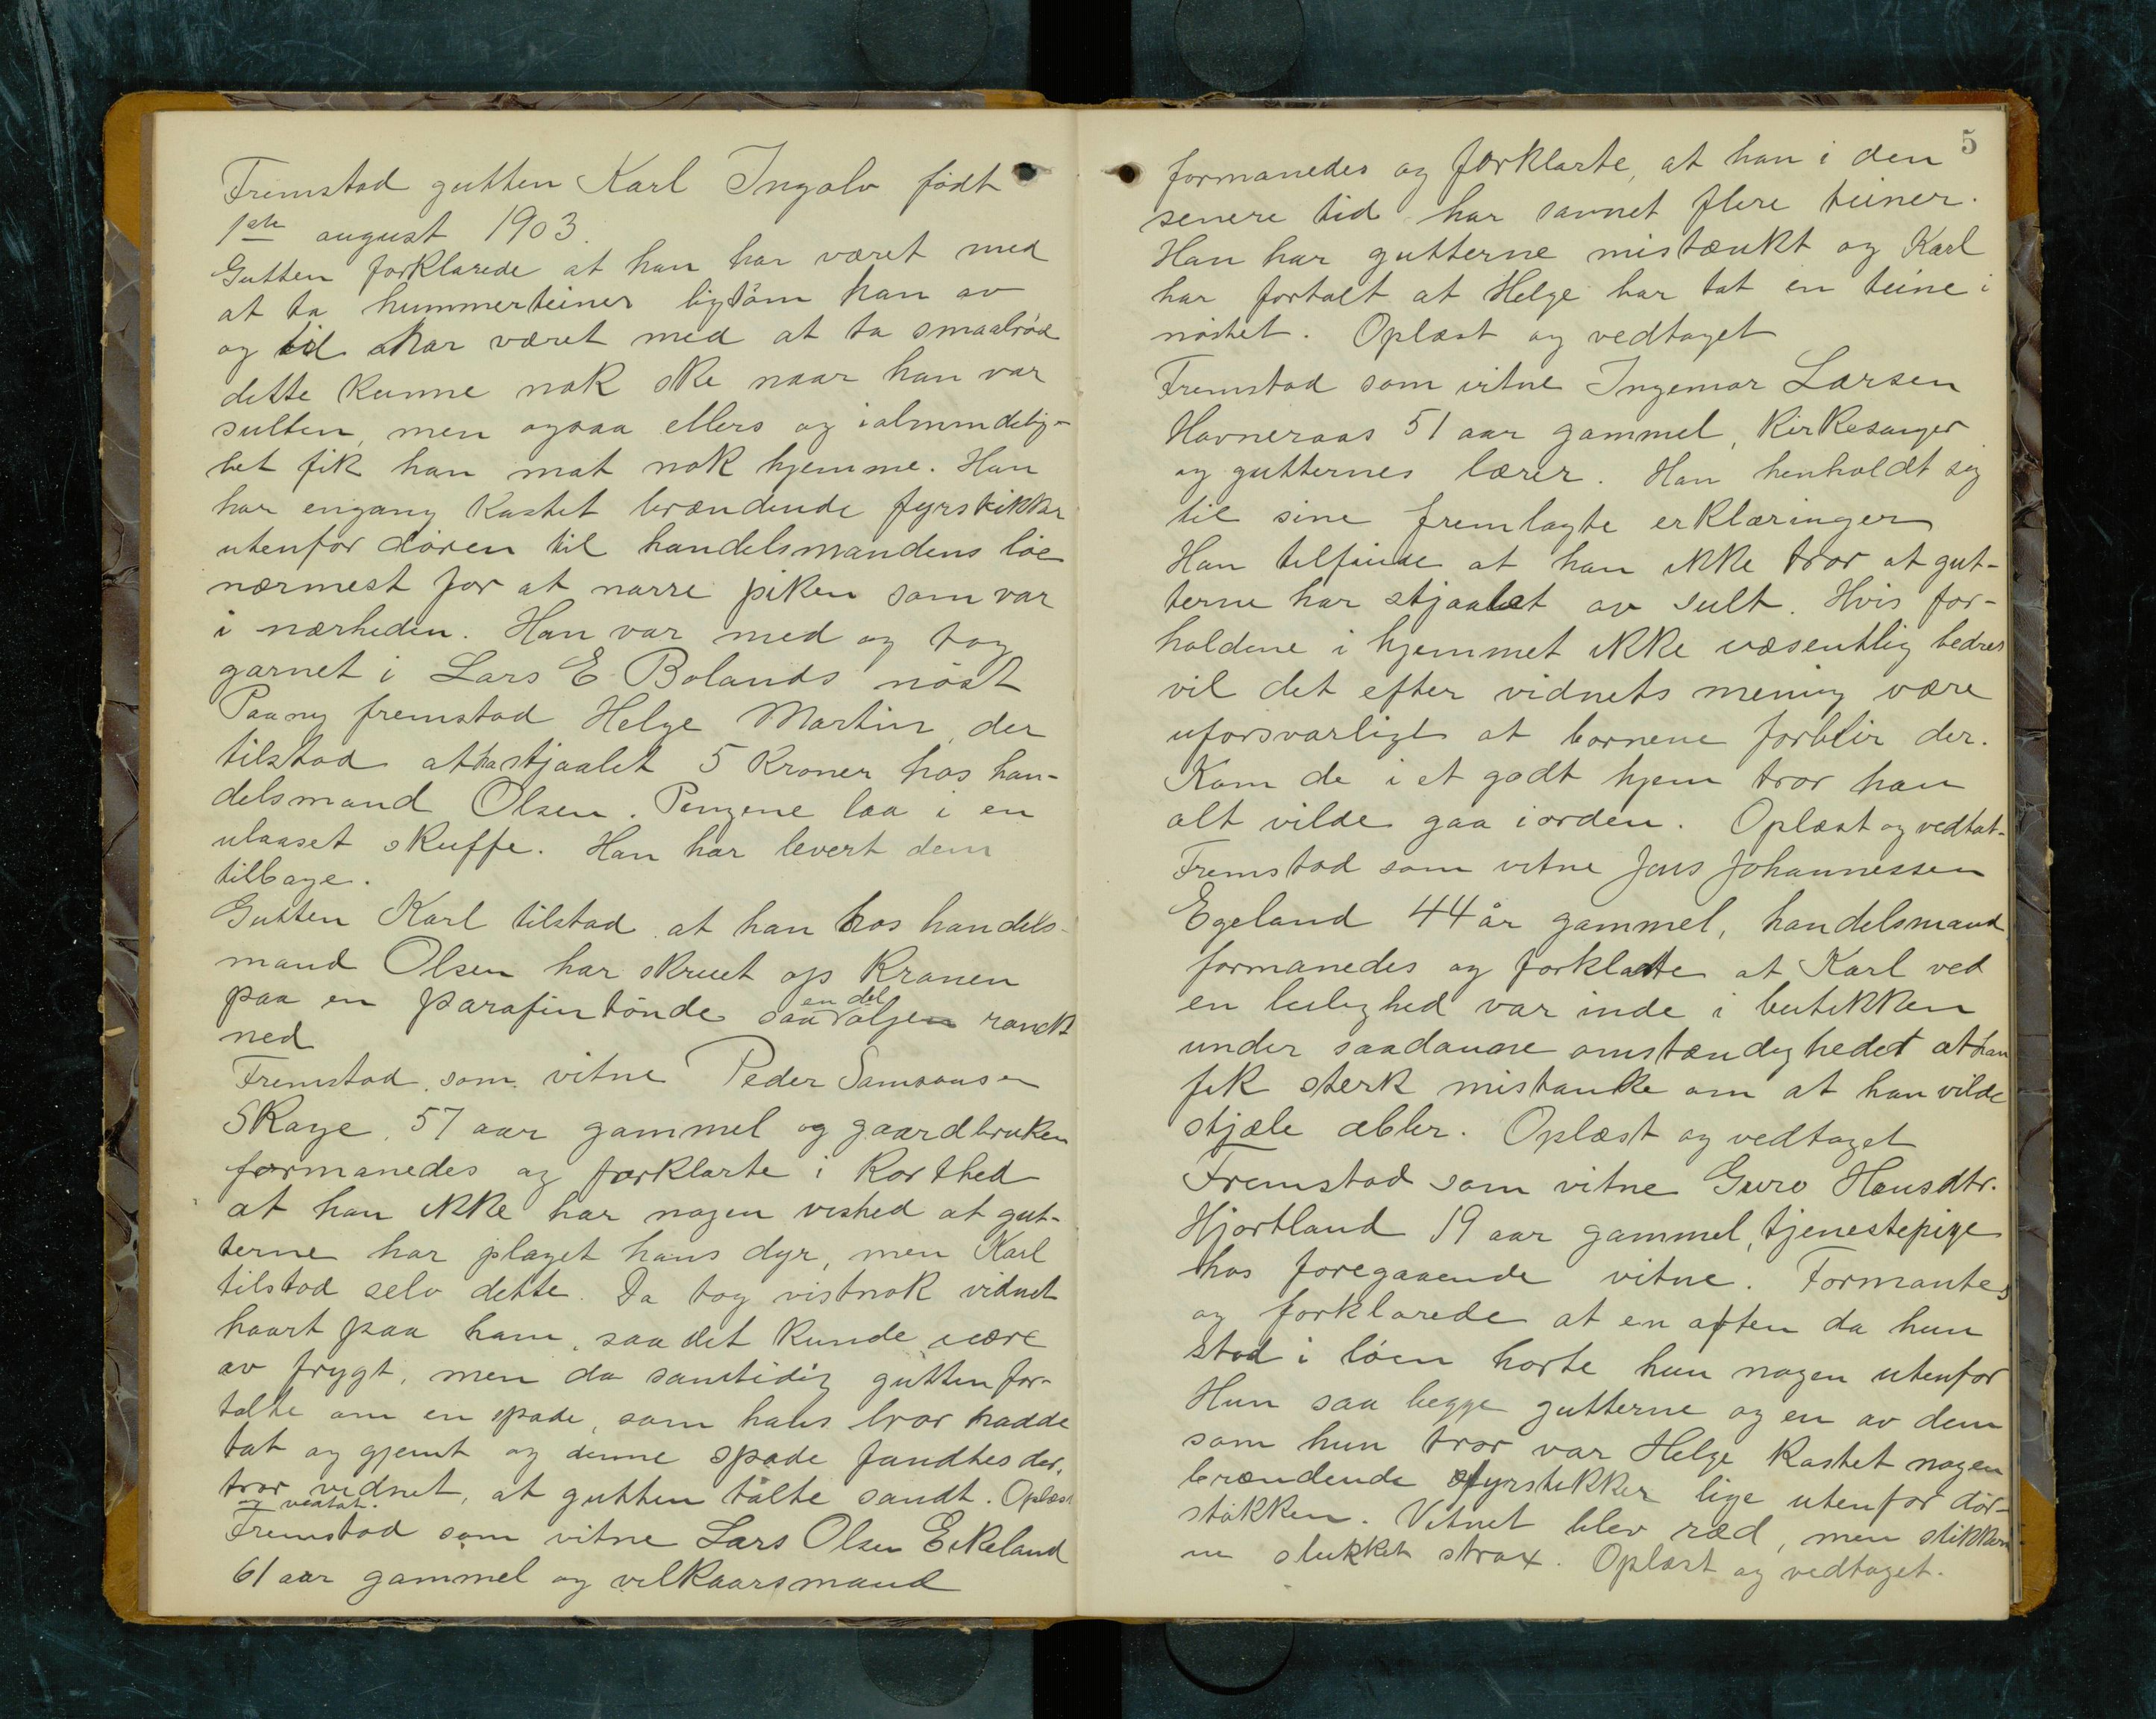 Fremstod gutten Karl Ingolv født
1ste august 1903.
Gutten forklarede at han har været med
at ta hummerteiner ligsom han av
og til har været med at ta smaabrød
dette kunne nok ske naar han var
sulten, men ogsaa ellers og i almindelig-
het fik han mat nok hjemme. Han
har engang kastet brændende fyrstikker
utenfor døren til handelsmandens løe
nærmest for at narre piken som var
i nærheden. Han var med og tog
garnet i Lars E Bolands nöst
Paany fremstod Helge Martin, der
tilstod at ha stjaalet 5 Kroner hos han-
delsmand Olsen. Pengene laa i en
ulaaset skuffe. Han har levert dem
tilbage.
Gutten Karl tilstod at han hos handels-
mand Olsen har skruet op Kranen
paa en parafintönde saa en del oljen randt
ned
Fremstod som vitne Peder Samsonsen
Skage, 57 aar gammel og gaardbruker
formanedes og forklarte i Korthed
at han ikke har nogen vished at gut-
terne har plaget hans dyr, men Karl
tilstod selv dette. Da tog vistnok vidnet
haart paa ham, saa det kunde være
av frygt, men da samtidig gutten for-
talte om en spade, som hans bror hadde
tat og gjemt og denne spade fandtes der,
tror vidnet, at gutten talte sandt. Oplæst
og vedtat.
Fremstod som vitne Lars Olsen Eikeland
61 aar gammel og vilkaarsmand
5
formanedes og forklarte, at han i den
senere tid har savnet flere teiner.
Han har gutterne mistænkt og Karl
har fortalt at Helge har tat en teine i
nöstet. Oplæst og vedtaget
Fremstod som vitne Ingemar Larsen
Havneraas 51 aar gammel, Kirkesanger
og gutternes lærer. Han henholdt sig
til sine fremlagte erklæringer
Han tilføiede at han ikke tror at gut-
terne har stjaalet av sult. Hvis for-
holdene i hjemmet ikke væsentlig bedres
vil det efter vidnets mening være
uforsvarligt at bornene forblir der.
Kom de i et godt hjem tror han
alt vilde gaa iorden. Oplæst og vedtat.
Fremstod som vitne Jens Johannessen
Egeland 44 år gammel, handelsmand,
formanedes og forklarte at Karl ved
en leilighed var inde i butikken
under saadanne omstændigheder at han
fik sterk mistanke om at han vilde
stjæle æbler. Oplæst og vedtaget
Fremstod som vitne Guro Hansdtr.
Hjortland 19 aar gammel, tjenestepige
hos foregaaende vitne. Formantes
og forklarede at en aften da hun
stod i löen horte hun nogen utenfor
Hun saa begge gutterne og en av dem
som hun tror var Helge kastet nogen
brændende fyrstikker lige utenfor dör-
stokken. Vitnet blev ræd, men stikker-
ne slukket strax. Oplæst og vedtaget.